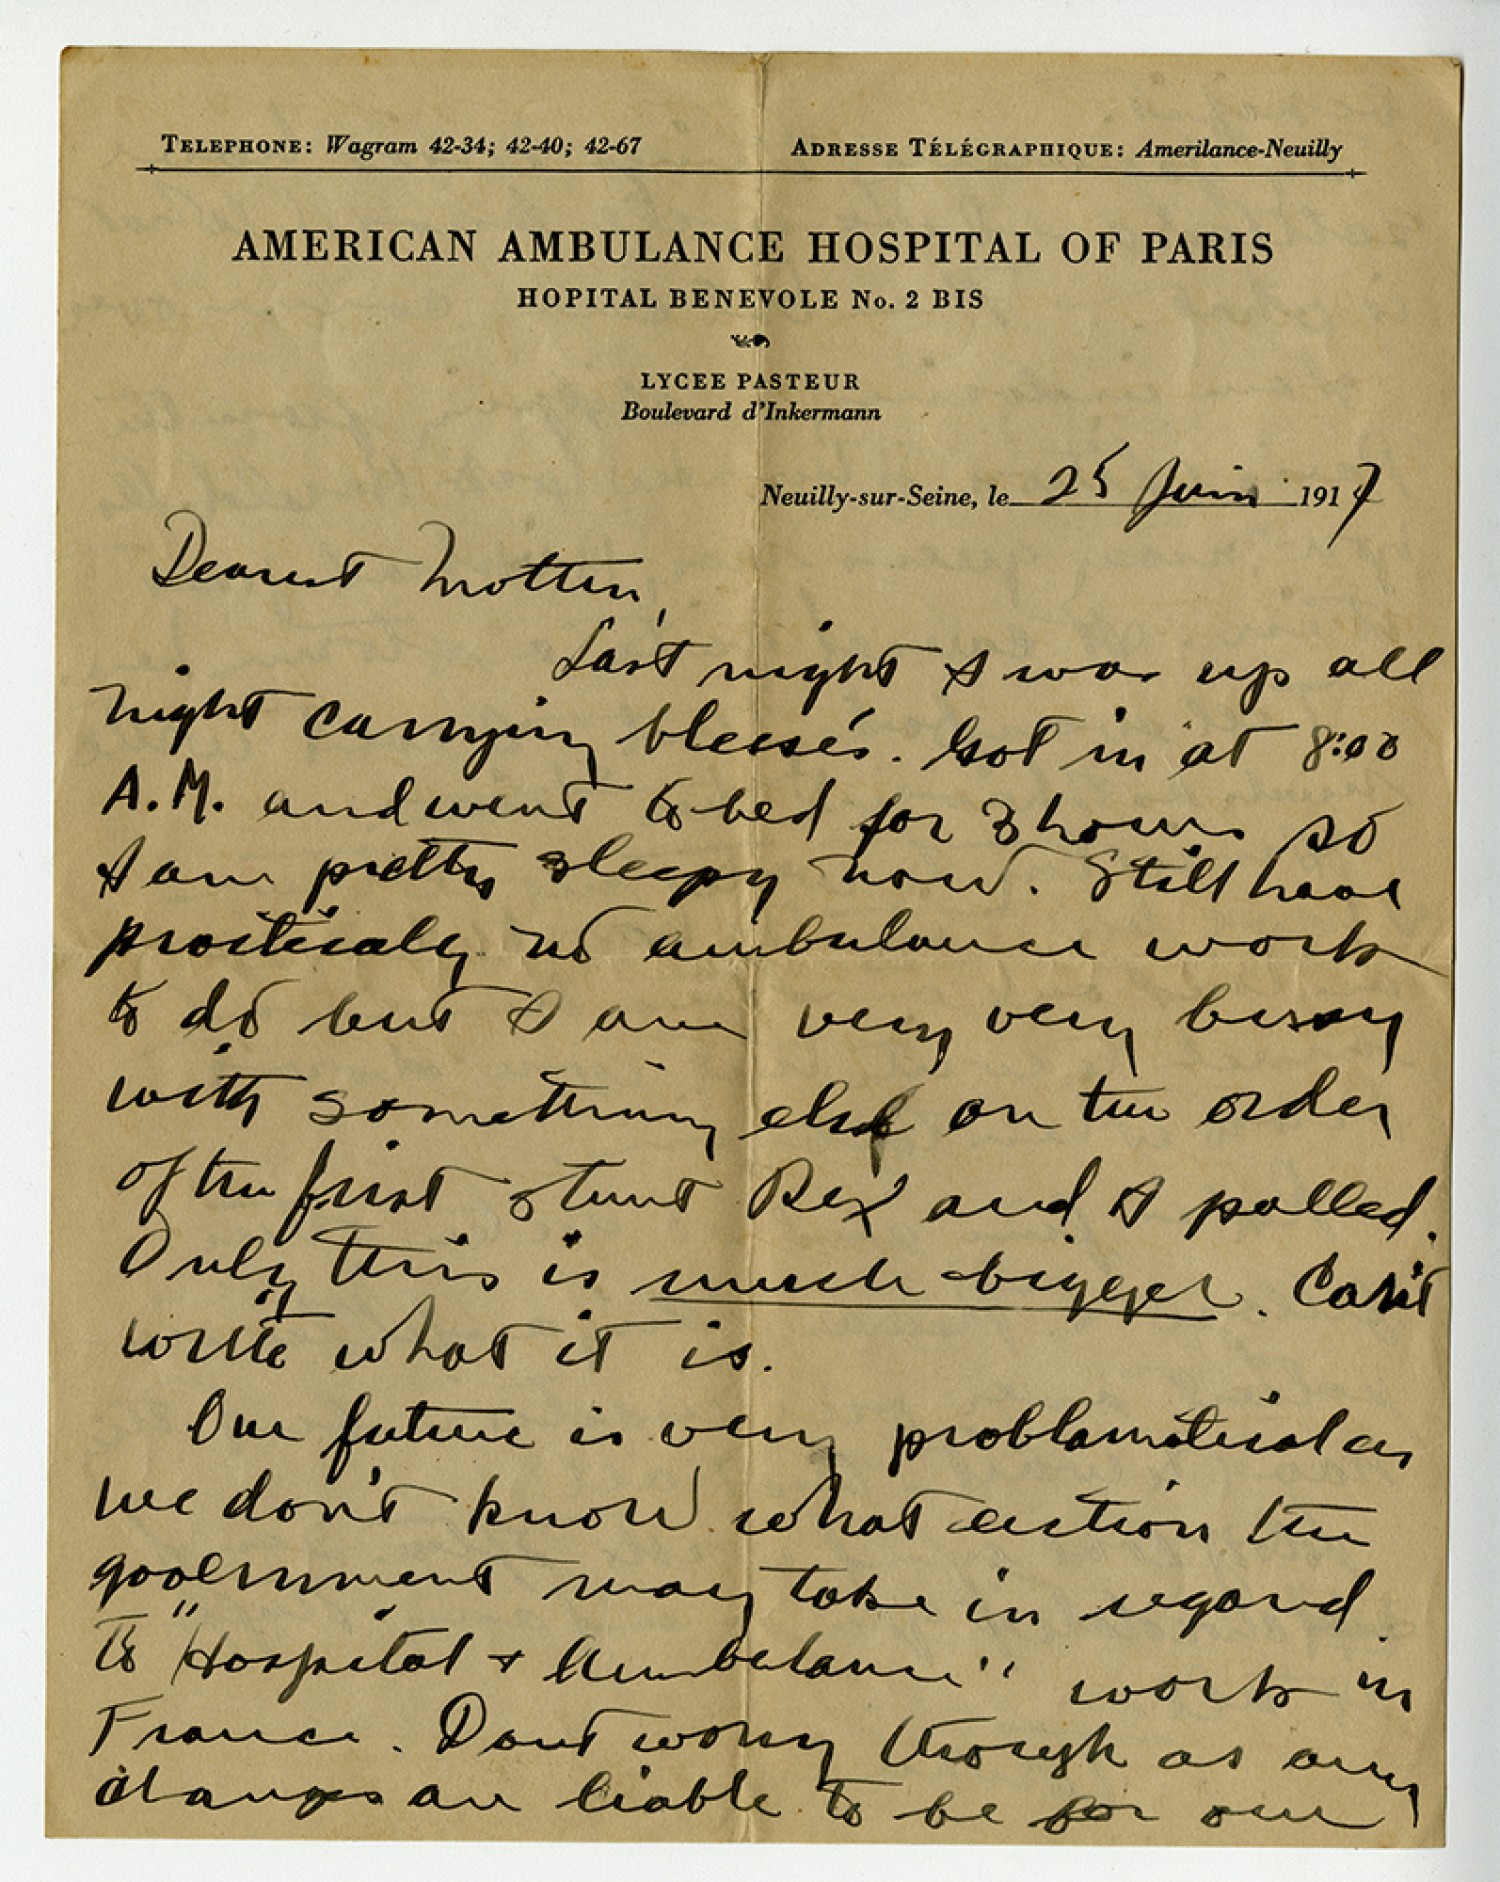 TELEPHONE: Wagram 42-34; 42-40; 42-67
ADRESSE TÉLÉGRAPHIQUE: Amerilance-Neuilly
AMERICAN AMBULANCE HOSPITAL OF PARIS
HOPITAL BENEVOLE No. 2 BIS
LYCEE PASTEUR
Boulevard d'Inkermann
Neuilly-sur-Seine, le 25 Juin 1917
Dearest Mother,
Last night I was up all
night carrying blessés. Got in at 8:00
A.M. and went to bed for 3 hours so
I am pretty sleepy now. Still have
practicaly no ambulance work
to do but I am very very busy
with something else on the order
of the first stunt Rex and I pulled.
Only this is much bigger. Can't
write what it is.
Our future is very problamatical as
we don't know what action the
government may take in regard
to "Hospital + Ambulance" work in
France. Dont worry though as any
changes are liable to be for our